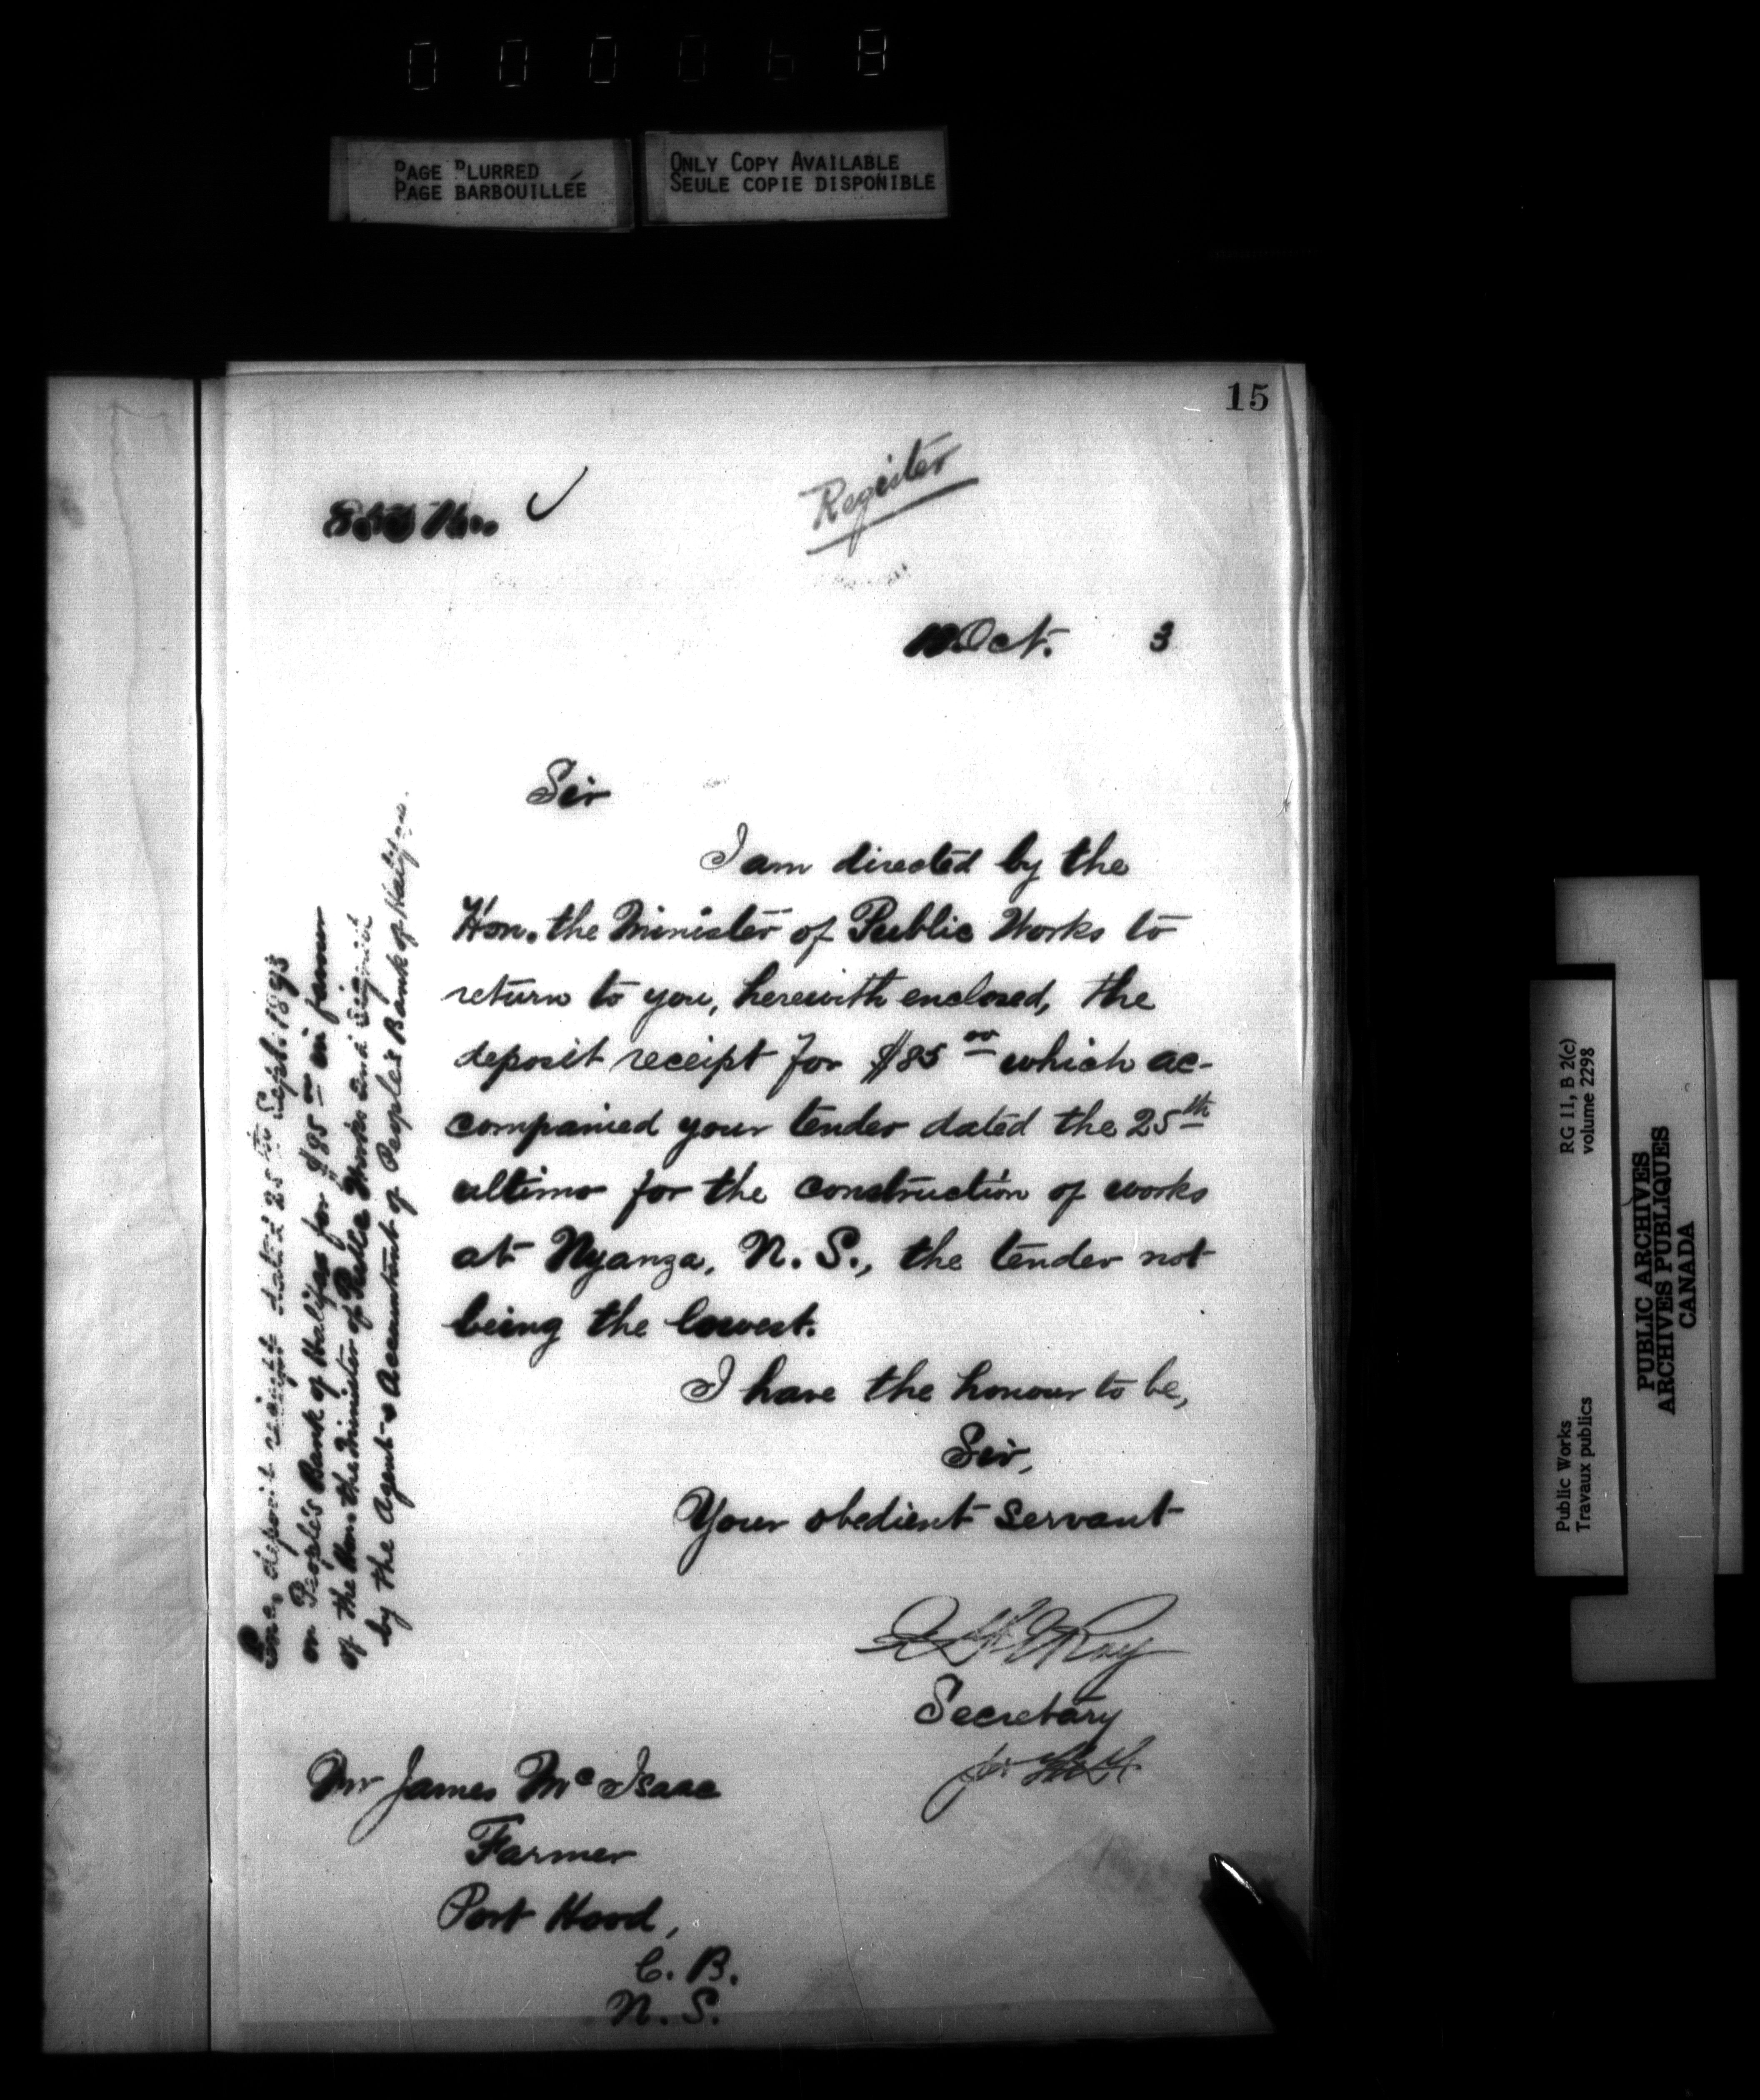 000068
PAGE BLURRED
PAGE BARBOUILLÉE
ONLY COPY AVAILABLE
SEULE COPIE DISPONIBLE
15
Register
Oct. 3
Sir
I am directed by the
Hon. the Minister of Public Works to
return to you, herewith enclosed, the
deposit receipt for $85 00 which ac-
companied your tender dated the 25th
ultimo for the construction of works
at Nyanza, N. S., the tender not
being the lowest.
I have the honour to be,
Sir,
Your obedient servant
Roy
Secretary
Mr James McIsaac
Farmer
Port Hood,
C. B.
N. S.
deposit receipt dated 25th Sept. 1893
on People's Bank of Halifax for $85 00 in favour
of the Hon. the Minister of Public Works and signed
by the Agent & Accountant of People's Bank of Halifax.
Public Works
Travaux publics
RG 11, B 2(c)
volume 2298
PUBLIC ARCHIVES
ARCHIVES PUBLIQUES
CANADA